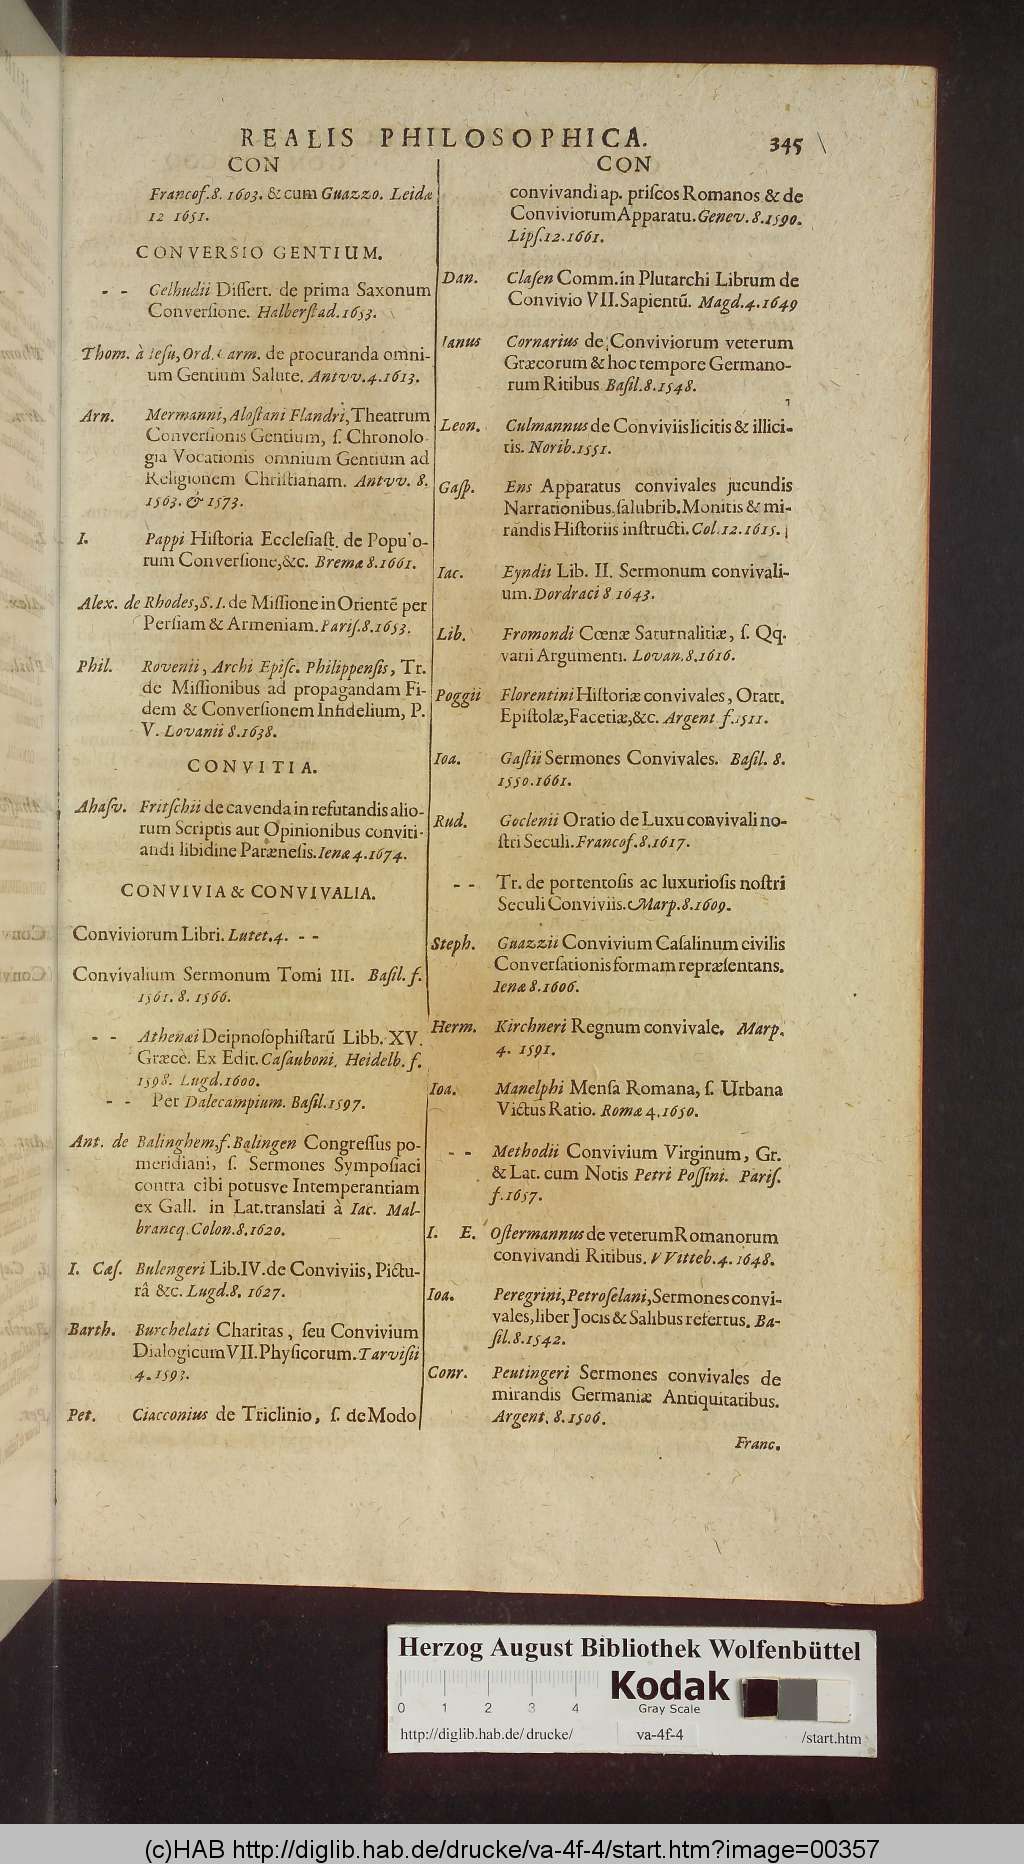 REALIS PHILOSOPHICA. 345
CON
Francof. 8. 1603. & cum Guazzo. Leidæ
12 1651.
CONVERSIO GENTIUM.
- - Gelhudii Dissert. de prima Saxonum
Conversione. Halberstad. 1653.
Thom. à Iesu, Ord. Carm. de procuranda omni-
um Gentium Salute. Antvv. 4. 1613.
Arn. Mermanni, Alostani Flandri, Theatrum
Conversionis Gentium, s. Chronolo-
gia Vocationis omnium Gentium ad
Religionem Christianam. Antvv. 8.
1563. & 1573.
I. Pappi Historia Ecclesiast. de Popu'o-
rum Conversione, &c. Bremæ 8. 1661.
Alex. de Rhodes, S. I. de Missione in Orientē per
Persiam & Armeniam. Paris. 8. 1653.
Phil. Rovenii, Archi Episc. Philippensis, Tr.
de Missionibus ad propagandam Fi-
dem & Conversionem Infidelium, P.
V. Lovanii 8. 1638.
CONVITIA.
Ahasv. Fritschii de cavenda in refutandis alio-
rum Scriptis aut Opinionibus conviti-
andi libidine Parænesis. Ienæ 4. 1674.
CONVIVIA & CONVIVALIA.
Conviviorum Libri. Lutet. 4. - -
Convivalium Sermonum Tomi III. Basil. f.
1561. 8. 1566.
- - Athenæi Deipnosophistarū Libb. XV.
Græcè. Ex Edit. Casauboni. Heidelb. f.
1598. Lugd. 1600.
- - Per Dalecampium. Basil. 1597.
Ant. de Balinghem, s. Balingen Congressus po-
meridiani, s. Sermones Symposiaci
contra cibi potusve Intemperantiam
ex Gall. in Lat. translati à Iac. Mal-
brancq. Colon. 8. 1620.
I. Cæs. Bulengeri Lib. IV. de Conviviis, Pictu-
râ &c. Lugd. 8. 1627.
Barth. Burchelati Charitas, seu Convivium
Dialogicum VII. Physicorum. Tarvisii
4. 1593.
Pet. Ciacconius de Triclinio, s. de Modo
CON
convivandi ap. priscos Romanos & de
Conviviorum Apparatu. Genev. 8. 1590.
Lips. 12. 1661.
Dan. Clasen Comm. in Plutarchi Librum de
Convivio VII. Sapientū. Magd. 4. 1649
Ianus Cornarius de Conviviorum veterum
Græcorum & hoc tempore Germano-
rum Ritibus Basil. 8. 1548.
Leon. Culmannus de Conviviis licitis & illici-
tis. Norib. 1551.
Gasp. Ens Apparatus convivales jucundis
Narrationibus, salubrib. Monitis & mi-
randis Historiis instructi. Col. 12. 1615.
Iac. Eyndii Lib. II. Sermonum convivali-
um. Dordraci 8 1643.
Lib. Fromondi Cœnæ Saturnalitiæ, s. Qq.
varii Argumenti. Lovan. 8. 1616.
Poggii Florentini Historiæ convivales, Oratt.
Epistolæ, Facetiæ, &c. Argent f. 1511.
Ioa. Gastii Sermones Convivales. Basil. 8.
1550. 1661.
Rud. Goclenii Oratio de Luxu convivali no-
stri Seculi. Francof. 8. 1617.
- - Tr. de portentosis ac luxuriosis nostri
Seculi Conviviis. Marp. 8. 1609.
Steph. Guazzii Convivium Casalinum civilis
Conversationis formam repræsentans.
Ienæ 8. 1606.
Herm. Kirchneri Regnum convivale. Marp.
4. 1591.
Ioa. Manelphi Mensa Romana, s. Urbana
Victus Ratio. Romæ 4. 1650.
- - Methodii Convivium Virginum, Gr.
& Lat. cum Notis Petri Possini. Paris.
f. 1657.
I. E. Ostermannus de veterum Romanorum
convivandi Ritibus. VVitteb. 4. 1648.
Ioa. Peregrini, Petroselani, Sermones convi-
vales, liber Jocis & Salibus refertus. Ba-
sil. 8. 1542.
Conr. Peutingeri Sermones convivales de
mirandis Germaniæ Antiquitatibus.
Argent. 8. 1506.
Franc.
Herzog August Bibliothek Wolfenbüttel
0 1 2 3 4
Kodak
Gray Scale
http://diglib.hab.de/drucke/ va-4f-4 /start.htm
(c)HAB http://diglib.hab.de/drucke/va-4f-4/start.htm?image=00357